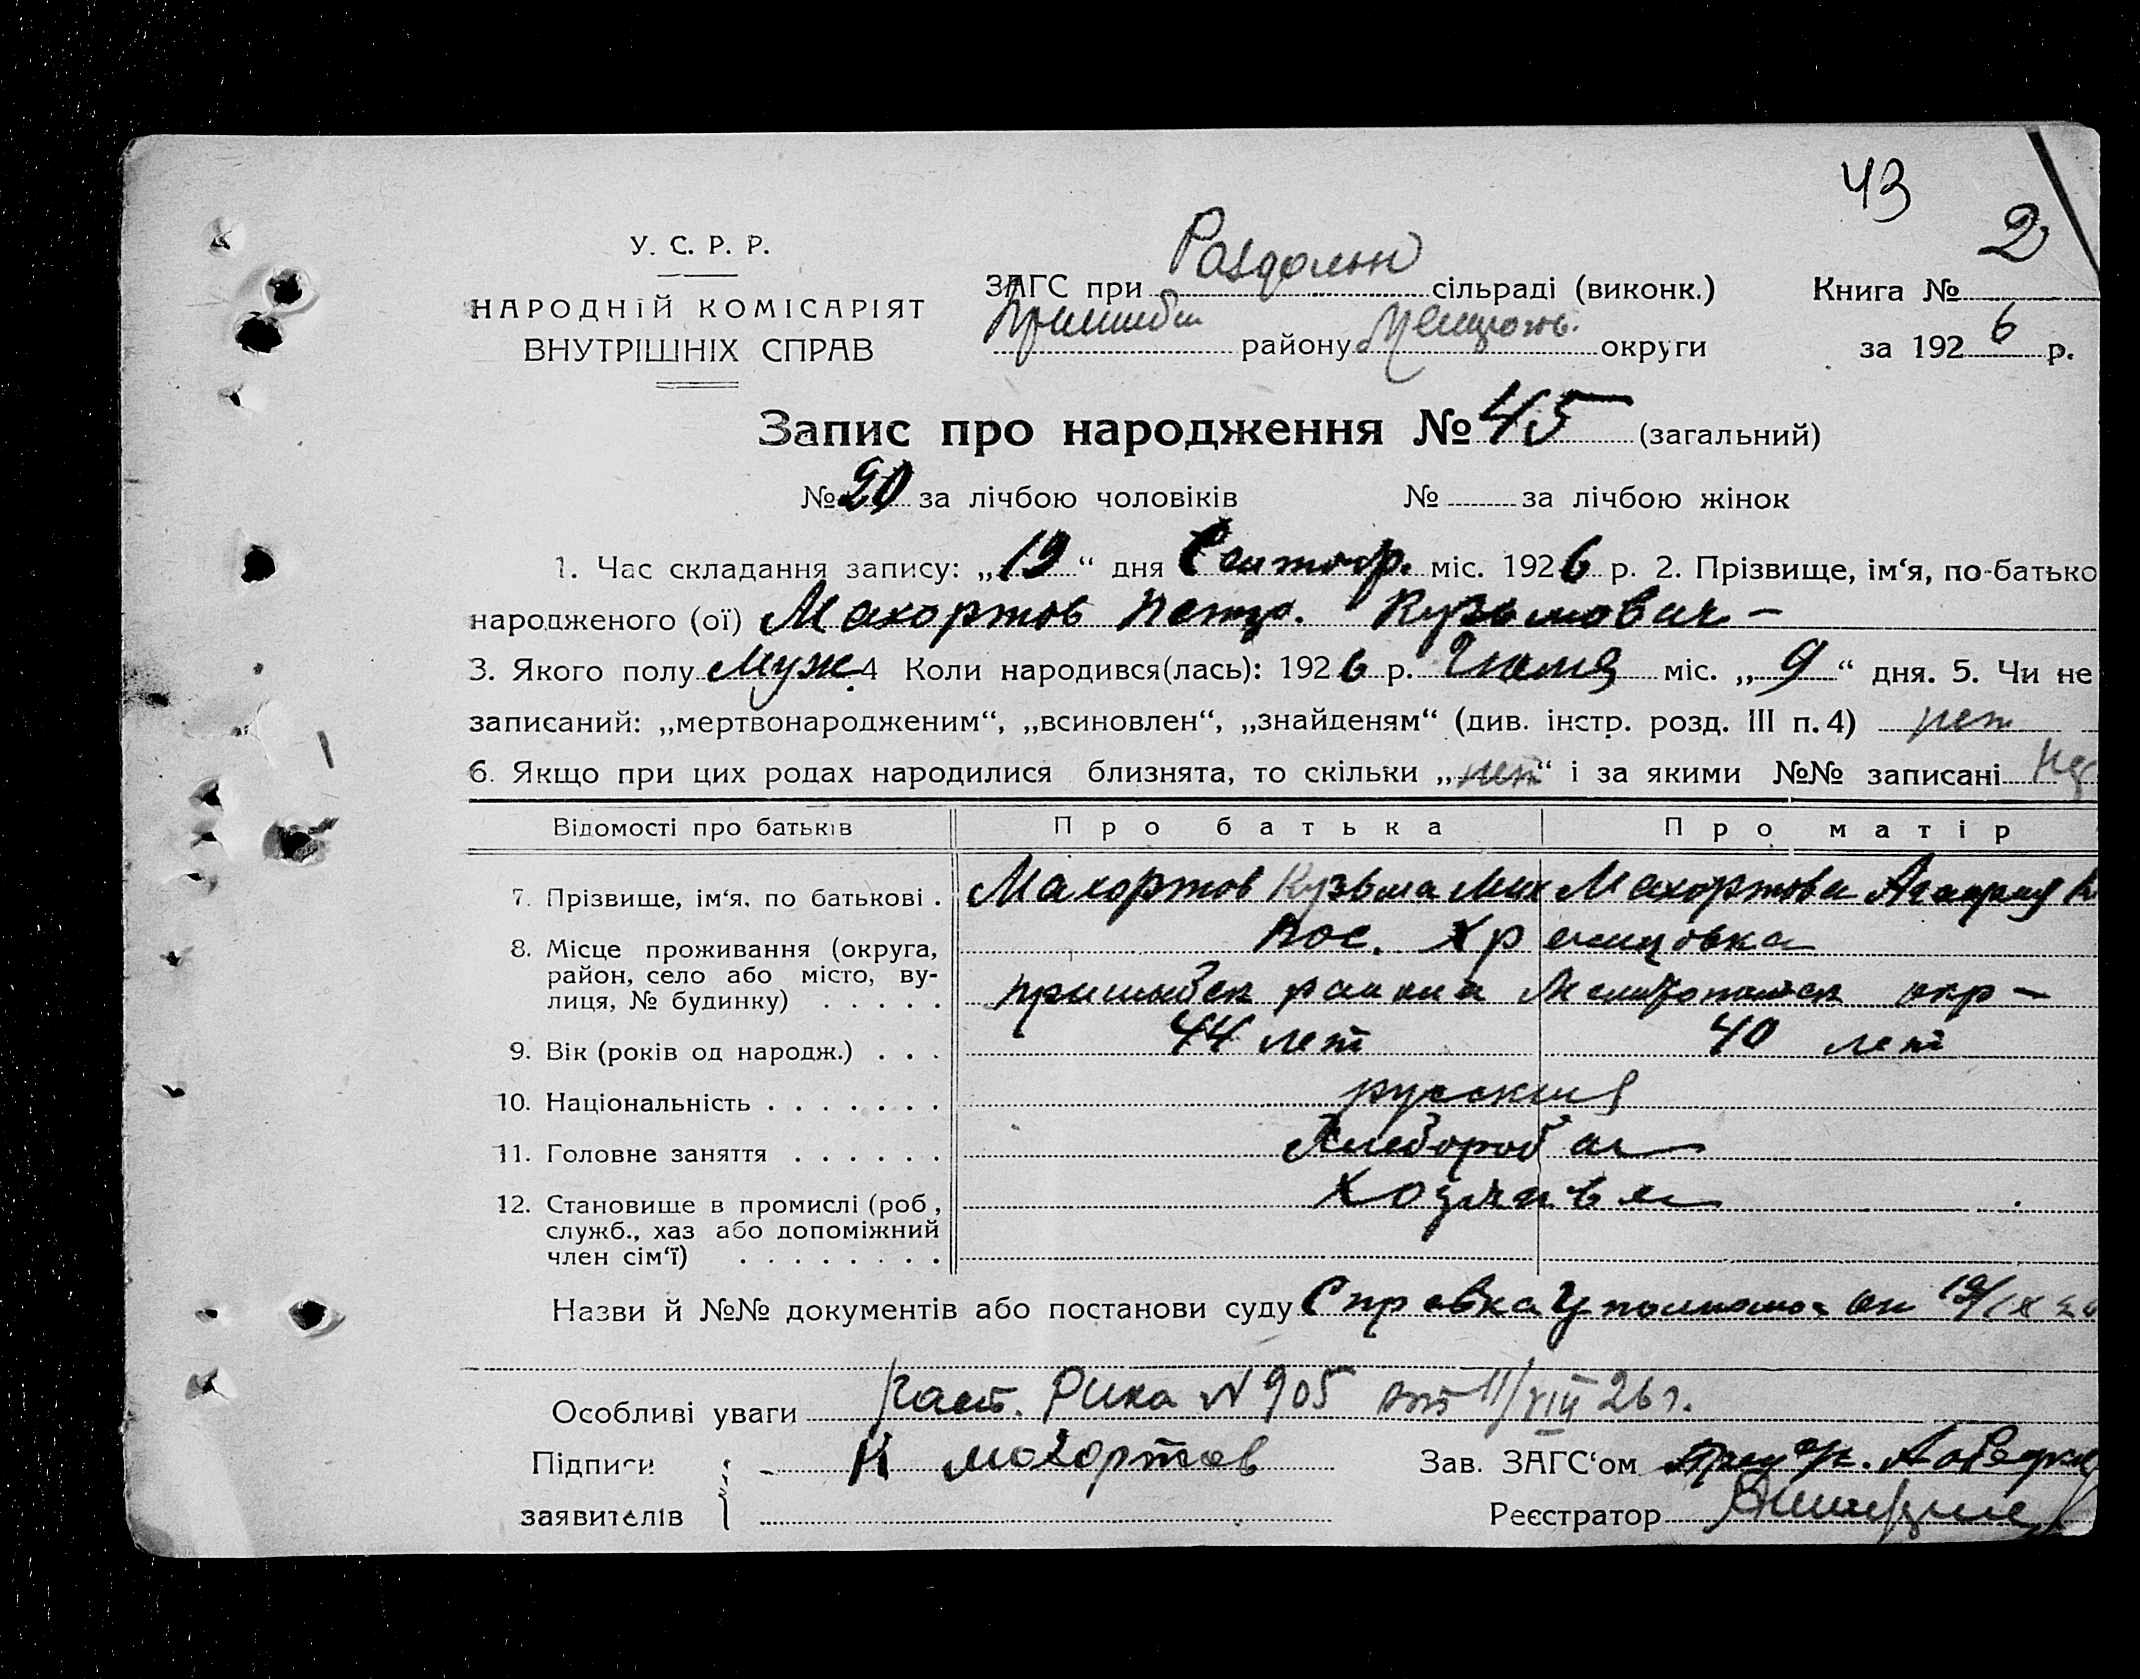 43
У. С. Р. Р.
НАРОДНІЙ КОМІСАРІЯТ
ВНУТРІШНІХ СПРАВ
ЗАГС при Раздольн сільраді (виконк.)
району округи
Книга № 2
за 1926 р.
Запис про народження № 45 (загальний)
№ 20 за лічбою чоловіків № за лічбою жінок
1. Час складання запису: „19“ дня Сентябр. міс. 1926 р. 2. Прізвище, ім‘я, по-батько
народженого (ої) Махортов Петр. Кузьмович -
3. Якого полу Муж. 4 Коли народився(лась): 1926 р. Июля міс. „9“ дня. 5. Чи не
записаний: „мертвонародженим“, „всиновлен“, „знайденям“ (див. інстр. розд. III п. 4) нет
6. Якщо при цих родах народилися близнята, то скільки „нет“ і за якими №№ записані
Відомості про батьків Про батька Про матір
7. Прізвище, ім‘я, по батькові . Махортов Кузьма Мих Махортова
8. Місце проживання (округа, Пос.
район, село або місто, ву-
лиця, № будинку) . . . . . Мелитопольск окр -
9. Вік (років од народж.) . . . 44 лет 40 лет
10. Національність . . . . . . . русския
11. Головне заняття . . . . . .
12. Становище в промислі (роб.,
служб., хаз або допоміжний
член сім‘ї) . . . . . . . .
Назви й №№ документів або постанови суду Справка 19/IX
Особливі уваги Рика № 905 от 11/VIII 26 г.
Підписи К Махортов Зав. ЗАГС‘ом
заявителів Реєстратор